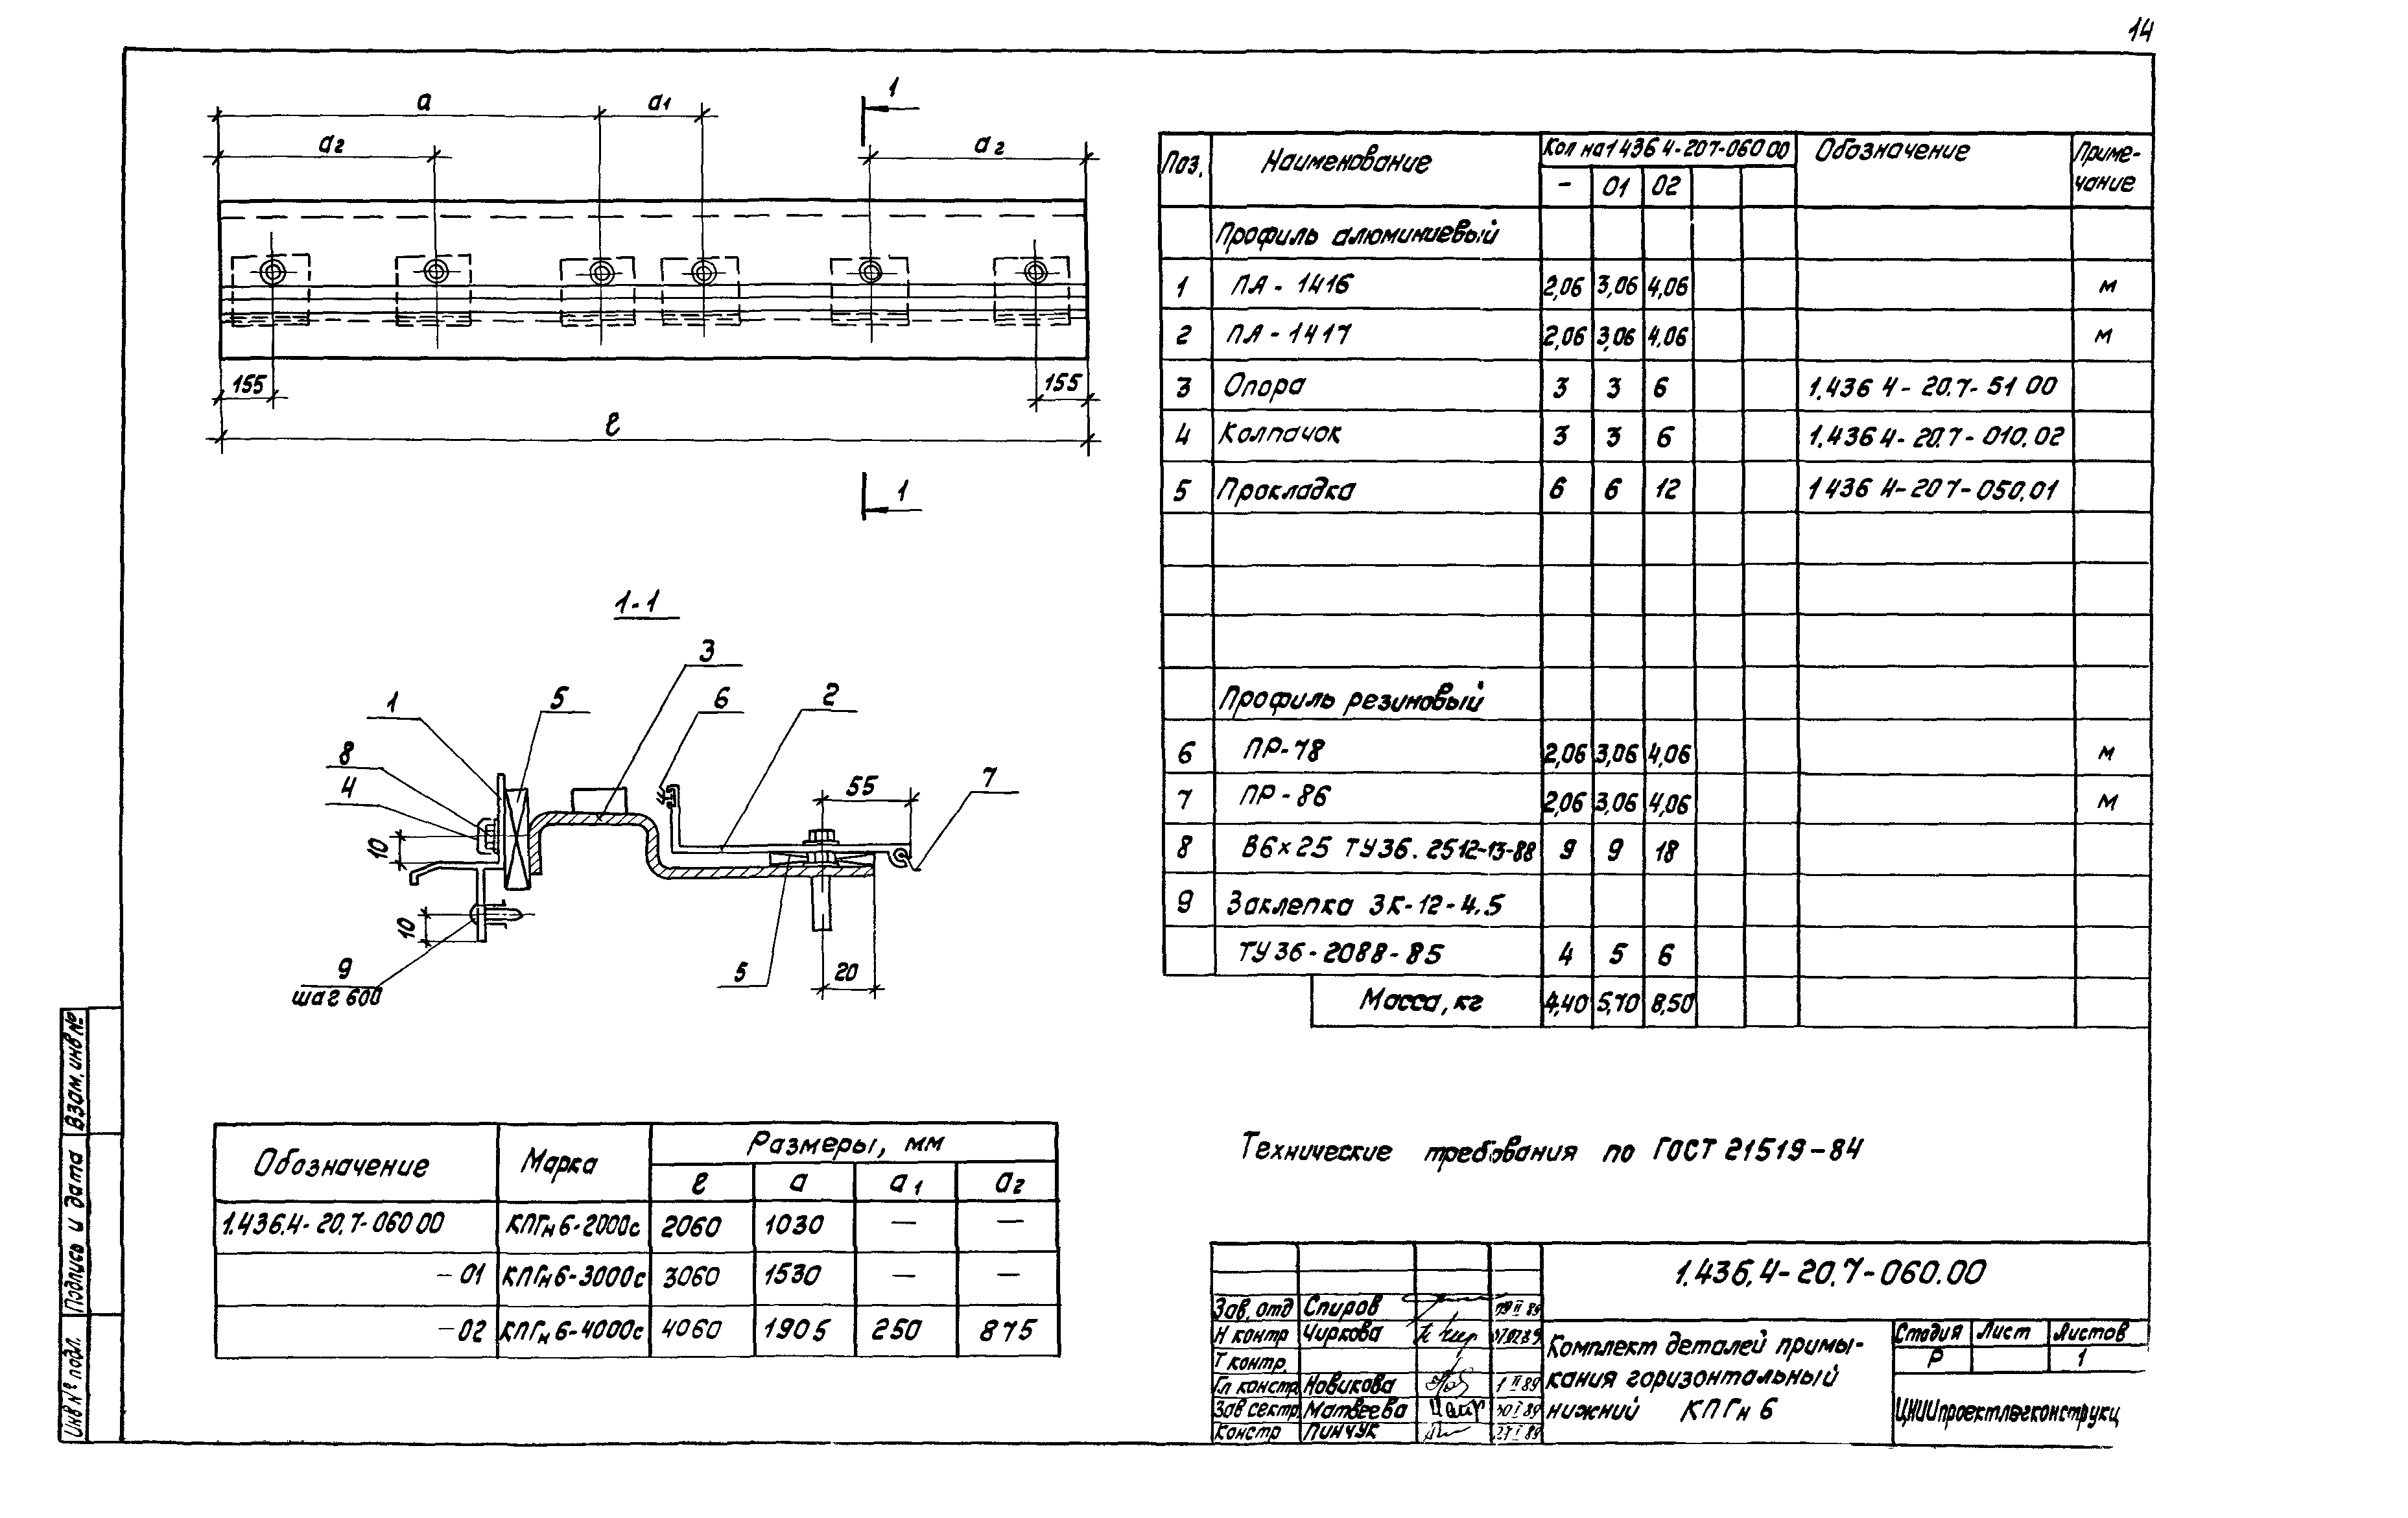 14
а а1 1
а2 а2
155 155
ℓ
1
1-1
3
1 5 6 2
8 55 7
4
10
10
9 5 20
шаг 600
Поз. Наименование Кол на 1 436 4-20 7-060 00 Обозначение Приме-
- 01 02 чание
Профиль алюминиевый
1 ПА - 1416 2,06 3,06 4,06 м
2 ПА - 1417 2,06 3,06 4,06 м
3 Опора 3 3 6 1.436 4 - 20.7 - 51 00
4 Колпачок 3 3 6 1.436 4 - 20.7 - 010.02
5 Прокладка 6 6 12 1 436 4 - 20 7 - 050.01
Профиль резиновый
6 ПР-78 2,06 3,06 4,06 м
7 ПР - 86 2,06 3,06 4,06 м
8 В6×25 ТУ36. 2512-13-88 9 9 18
9 Заклепка ЗК-12-4.5
ТУ 36 - 2088 - 85 4 5 6
Масса, кг 4,40 5,70 8,50
Обозначение Марка Размеры, мм
ℓ а а1 а2
1.436.4 - 20.7 - 060 00 КПГн 6-2000с 2060 1030 — —
- 01 КПГн 6-3000с 3060 1530 — —
- 02 КПГн 6-4000с 4060 1905 250 875
Технические требования по ГОСТ 21519-84
1.436.4 - 20.7 - 060.00
Зав. отд Спиров
Н контр Чиркова
Т контр.
Гл констр Новикова
Зав сектр Матвеева
Констр Пинчук
Комплект деталей примы-
кания горизонтальный
нижний КПГн 6
Стадия Лист Листов
Р 1
ЦНИИпроектлегконструкц
Взам. инв №
Подпись и дата
Инв № подл.